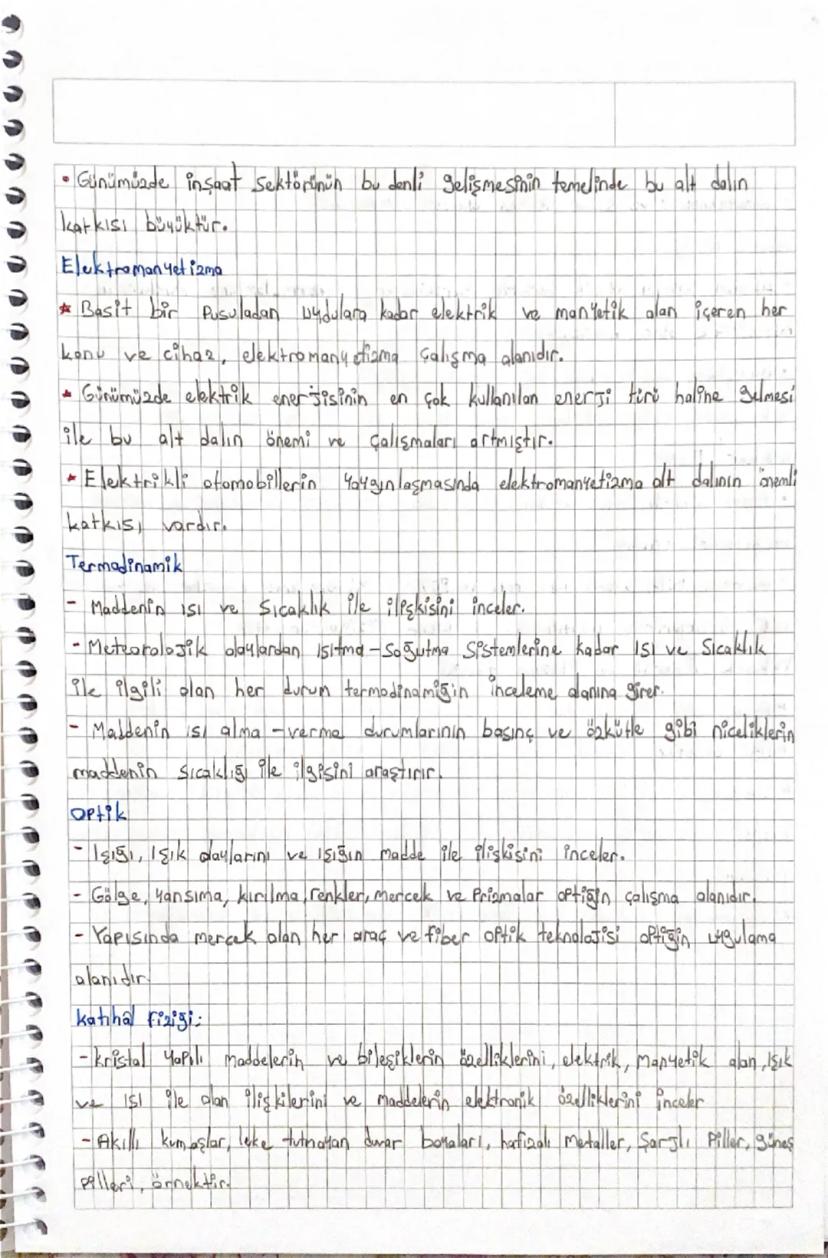 • Günümüzde inşaat sektörünün bu denli gelişmesinin temelinde bu alt dalın
katkısı büyüktür.
Elektromanyetizma
* Basit bir pusuladan uydulara kadar elektrik ve manyetik alan içeren her
konu ve cihaz, elektromanyetizma çalışma alanıdır.
* Günümüzde elektrik enerjisinin en çok kullanılan enerji türü haline gelmesi
ile bu alt dalın önemi ve çalışmaları artmıştır.
* Elektrikli otomobillerin yaygınlaşmasında elektromanyetizma alt dalının önemli
katkısı vardır.
Termodinamik
- Maddenin ısı ve sıcaklık ile ilişkisini inceler.
- Meteorolojik olaylardan ısıtma-soğutma sistemlerine kadar ısı ve sıcaklık
ile ilgili olan her durum termodinamiğin inceleme alanına girer.
- Maddenin ısı alma-verme durumlarının basınç ve özkütle gibi niceliklerin
maddenin sıcaklığı ile ilgisini araştırır.
Optik
- Işığı, ışık olaylarını ve ışığın madde ile ilişkisini inceler.
- Gölge, yansıma, kırılma, renkler, mercek ve prizmalar optiğin çalışma alanıdır.
- Yapısında mercek olan her araç ve fiber optik teknolojisi optiğin uygulama
alanıdır.
Katıhal fiziği:
- Kristal yapılı maddelerin ve bileşiklerin özelliklerini, elektrik, manyetik alan, ışık
ve ısı ile olan ilişkilerini ve maddelerin elektronik özelliklerini inceler
- Akıllı kumaşlar, leke tutmayan duvar boyaları, hafızalı metaller, şarjlı piller, güneş
pilleri, örnektir.